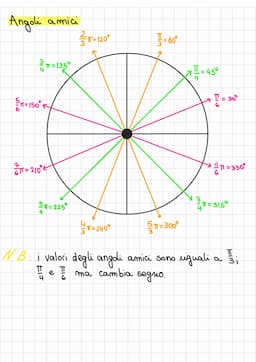 Angoli amici
2/3 π=120°
π/3=60°
3/4 π=135°
π/4=45°
5/6 π=150°
π/6=30°
7/6 π=210°
11/6 π=330°
5/4 π=225°
7/4 π=315°
4/3 π=240°
5/3 π=300°
N.B: i valori degli angoli amici sono uguali a π/3,
π/4 e π/6 ma cambia segno.